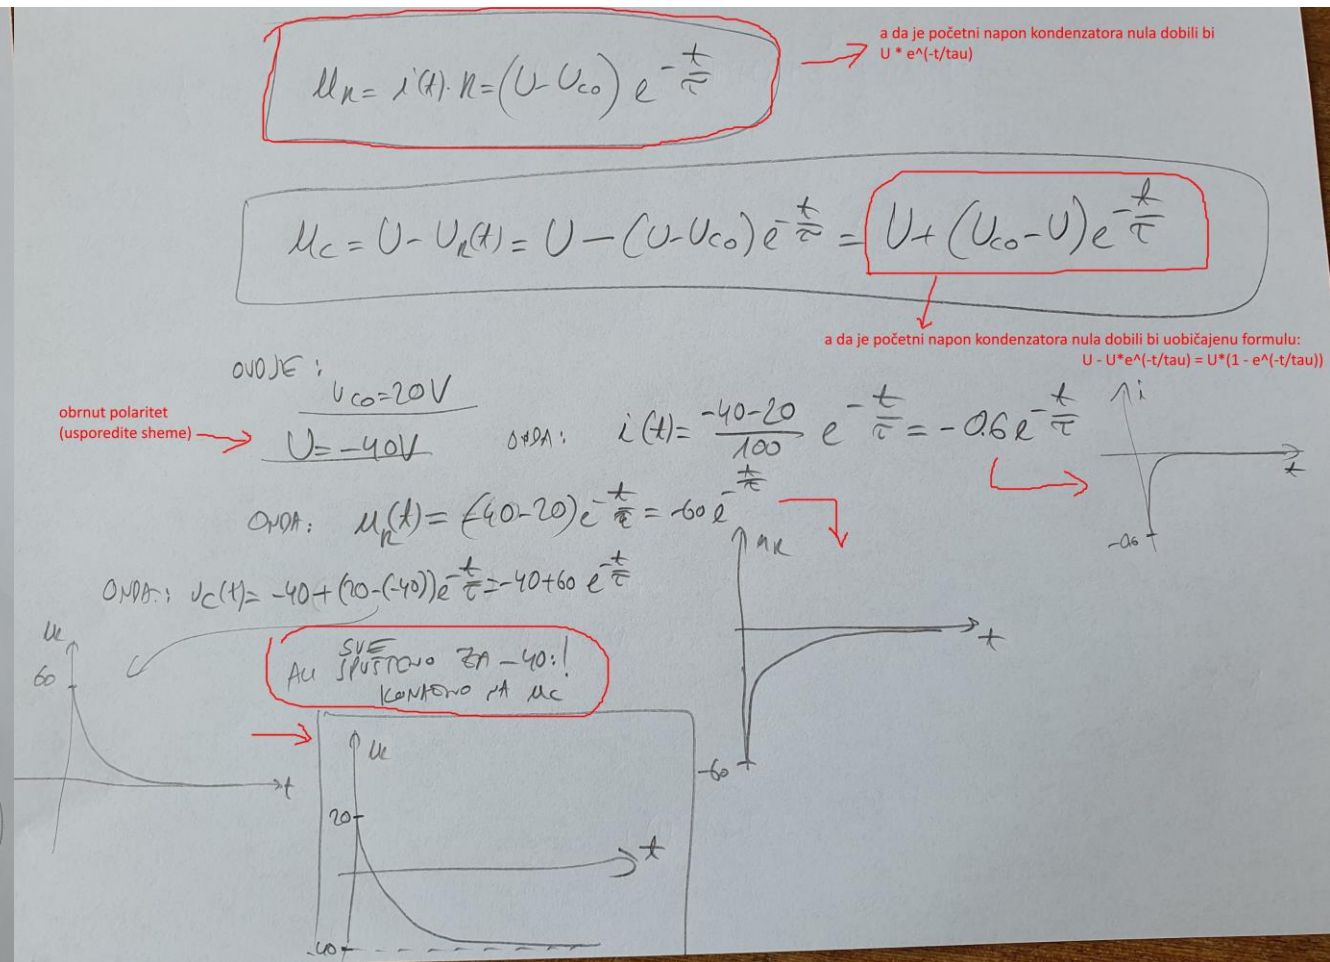 a da je početni napon kondenzatora nula dobili bi
U * e^(-t/tau)
u_R = i(t)·R = (U - U_co) e^(-t/τ)
u_C = U - U_R(t) = U - (U - U_co) e^(-t/τ) = U + (U_co - U) e^(-t/τ)
a da je početni napon kondenzatora nula dobili bi uobičajenu formulu:
U - U*e^(-t/tau) = U*(1 - e^(-t/tau))
OVDJE :
U_co = 20V
obrnut polaritet
(usporedite sheme)
U = -40V
ONDA: i(t) = (-40-20)/100 e^(-t/τ) = -0.6 e^(-t/τ)
i
t
-0.6
ONDA: u_R(t) = (-40-20) e^(-t/τ) = -60 e^(-t/τ)
u_R
t
-60
ONDA: u_C(t) = -40 + (20-(-40)) e^(-t/τ) = -40 + 60 e^(-t/τ)
u_C
60
t
SVE
ALI SPUŠTENO ZA -40:!
KONAČNO JA u_C
u_C
20
t
-40